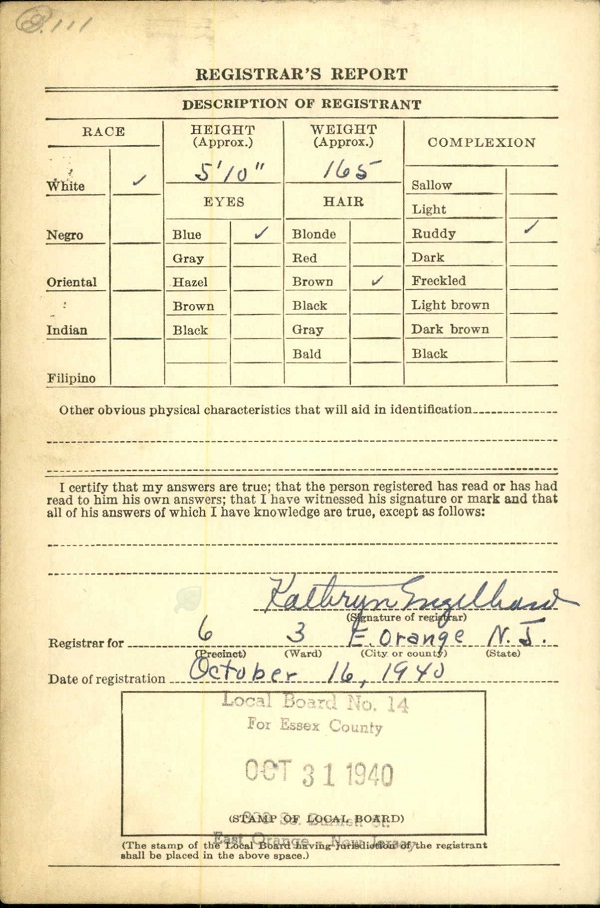 111
REGISTRAR'S REPORT
DESCRIPTION OF REGISTRANT
RACE HEIGHT (Approx.) WEIGHT (Approx.) COMPLEXION
5'10" 165
White ✓ Sallow
EYES HAIR Light
Negro Blue ✓ Blonde Ruddy ✓
Gray Red Dark
Oriental Hazel Brown ✓ Freckled
Brown Black Light brown
Indian Black Gray Dark brown
Bald Black
Filipino
Other obvious physical characteristics that will aid in identification
I certify that my answers are true; that the person registered has read or has had
read to him his own answers; that I have witnessed his signature or mark and that
all of his answers of which I have knowledge are true, except as follows:
Kathryn Engelhard
(Signature of registrar)
Registrar for 6 3 E. Orange N. J.
(Precinct) (Ward) (City or county) (State)
Date of registration October 16, 1940
Local Board No. 14
For Essex County
OCT 31 1940
(STAMP OF LOCAL BOARD)
East Orange - New Jersey
(The stamp of the Local Board having jurisdiction of the registrant
shall be placed in the above space.)